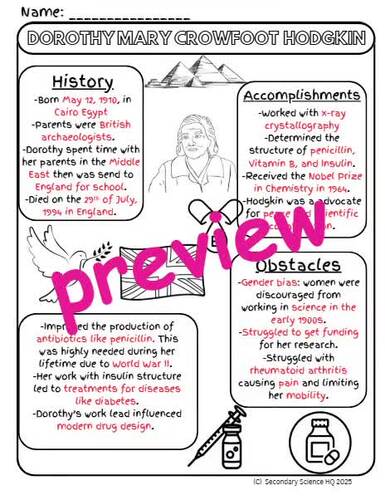 Name: _______________
DOROTHY MARY CROWFOOT HODGKIN
History
-Born May 12, 1910, in
Cairo Egypt
-Parents were British
archaeologists.
-Dorothy spent time with
her parents in the Middle
East then was sent to
England for school.
-Died on the 29th of July,
1994 in England.
Accomplishments
-Worked with x-ray
crystallography
-Determined the
structure of penicillin,
Vitamin B, and Insulin.
-Received the Nobel Prize
in Chemistry in 1964.
-Hodgkin was an advocate
for peace and scientific
B
preview
Obstacles
-Gender bias: women were
discouraged from
working in science in the
early 1900s.
-Struggled to get funding
for her research.
-Struggled with
rheumatoid arthritis
causing pain and limiting
her mobility.
-Improved the production of
antibiotics like penicillin. This
was highly needed during her
lifetime due to world war II.
-Her work with insulin structure
led to treatments for diseases
like diabetes.
-Dorothy's work lead influenced
modern drug design.
(C) Secondary Science HQ 2025